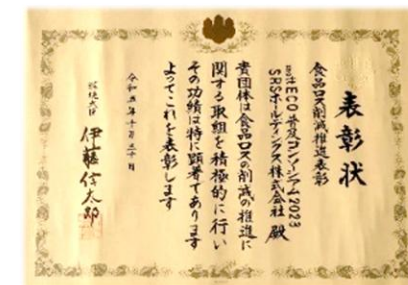 表彰状
食品ロス削減推進表彰
ECO
2023
SRSホールディングス株式会社 殿
貴団体は食品ロスの削減の推進に
関する取組を積極的に行い
その功績は特に顕著であります
よってこれを表彰します
令和五年十月三十日
環境大臣 伊藤信太郎